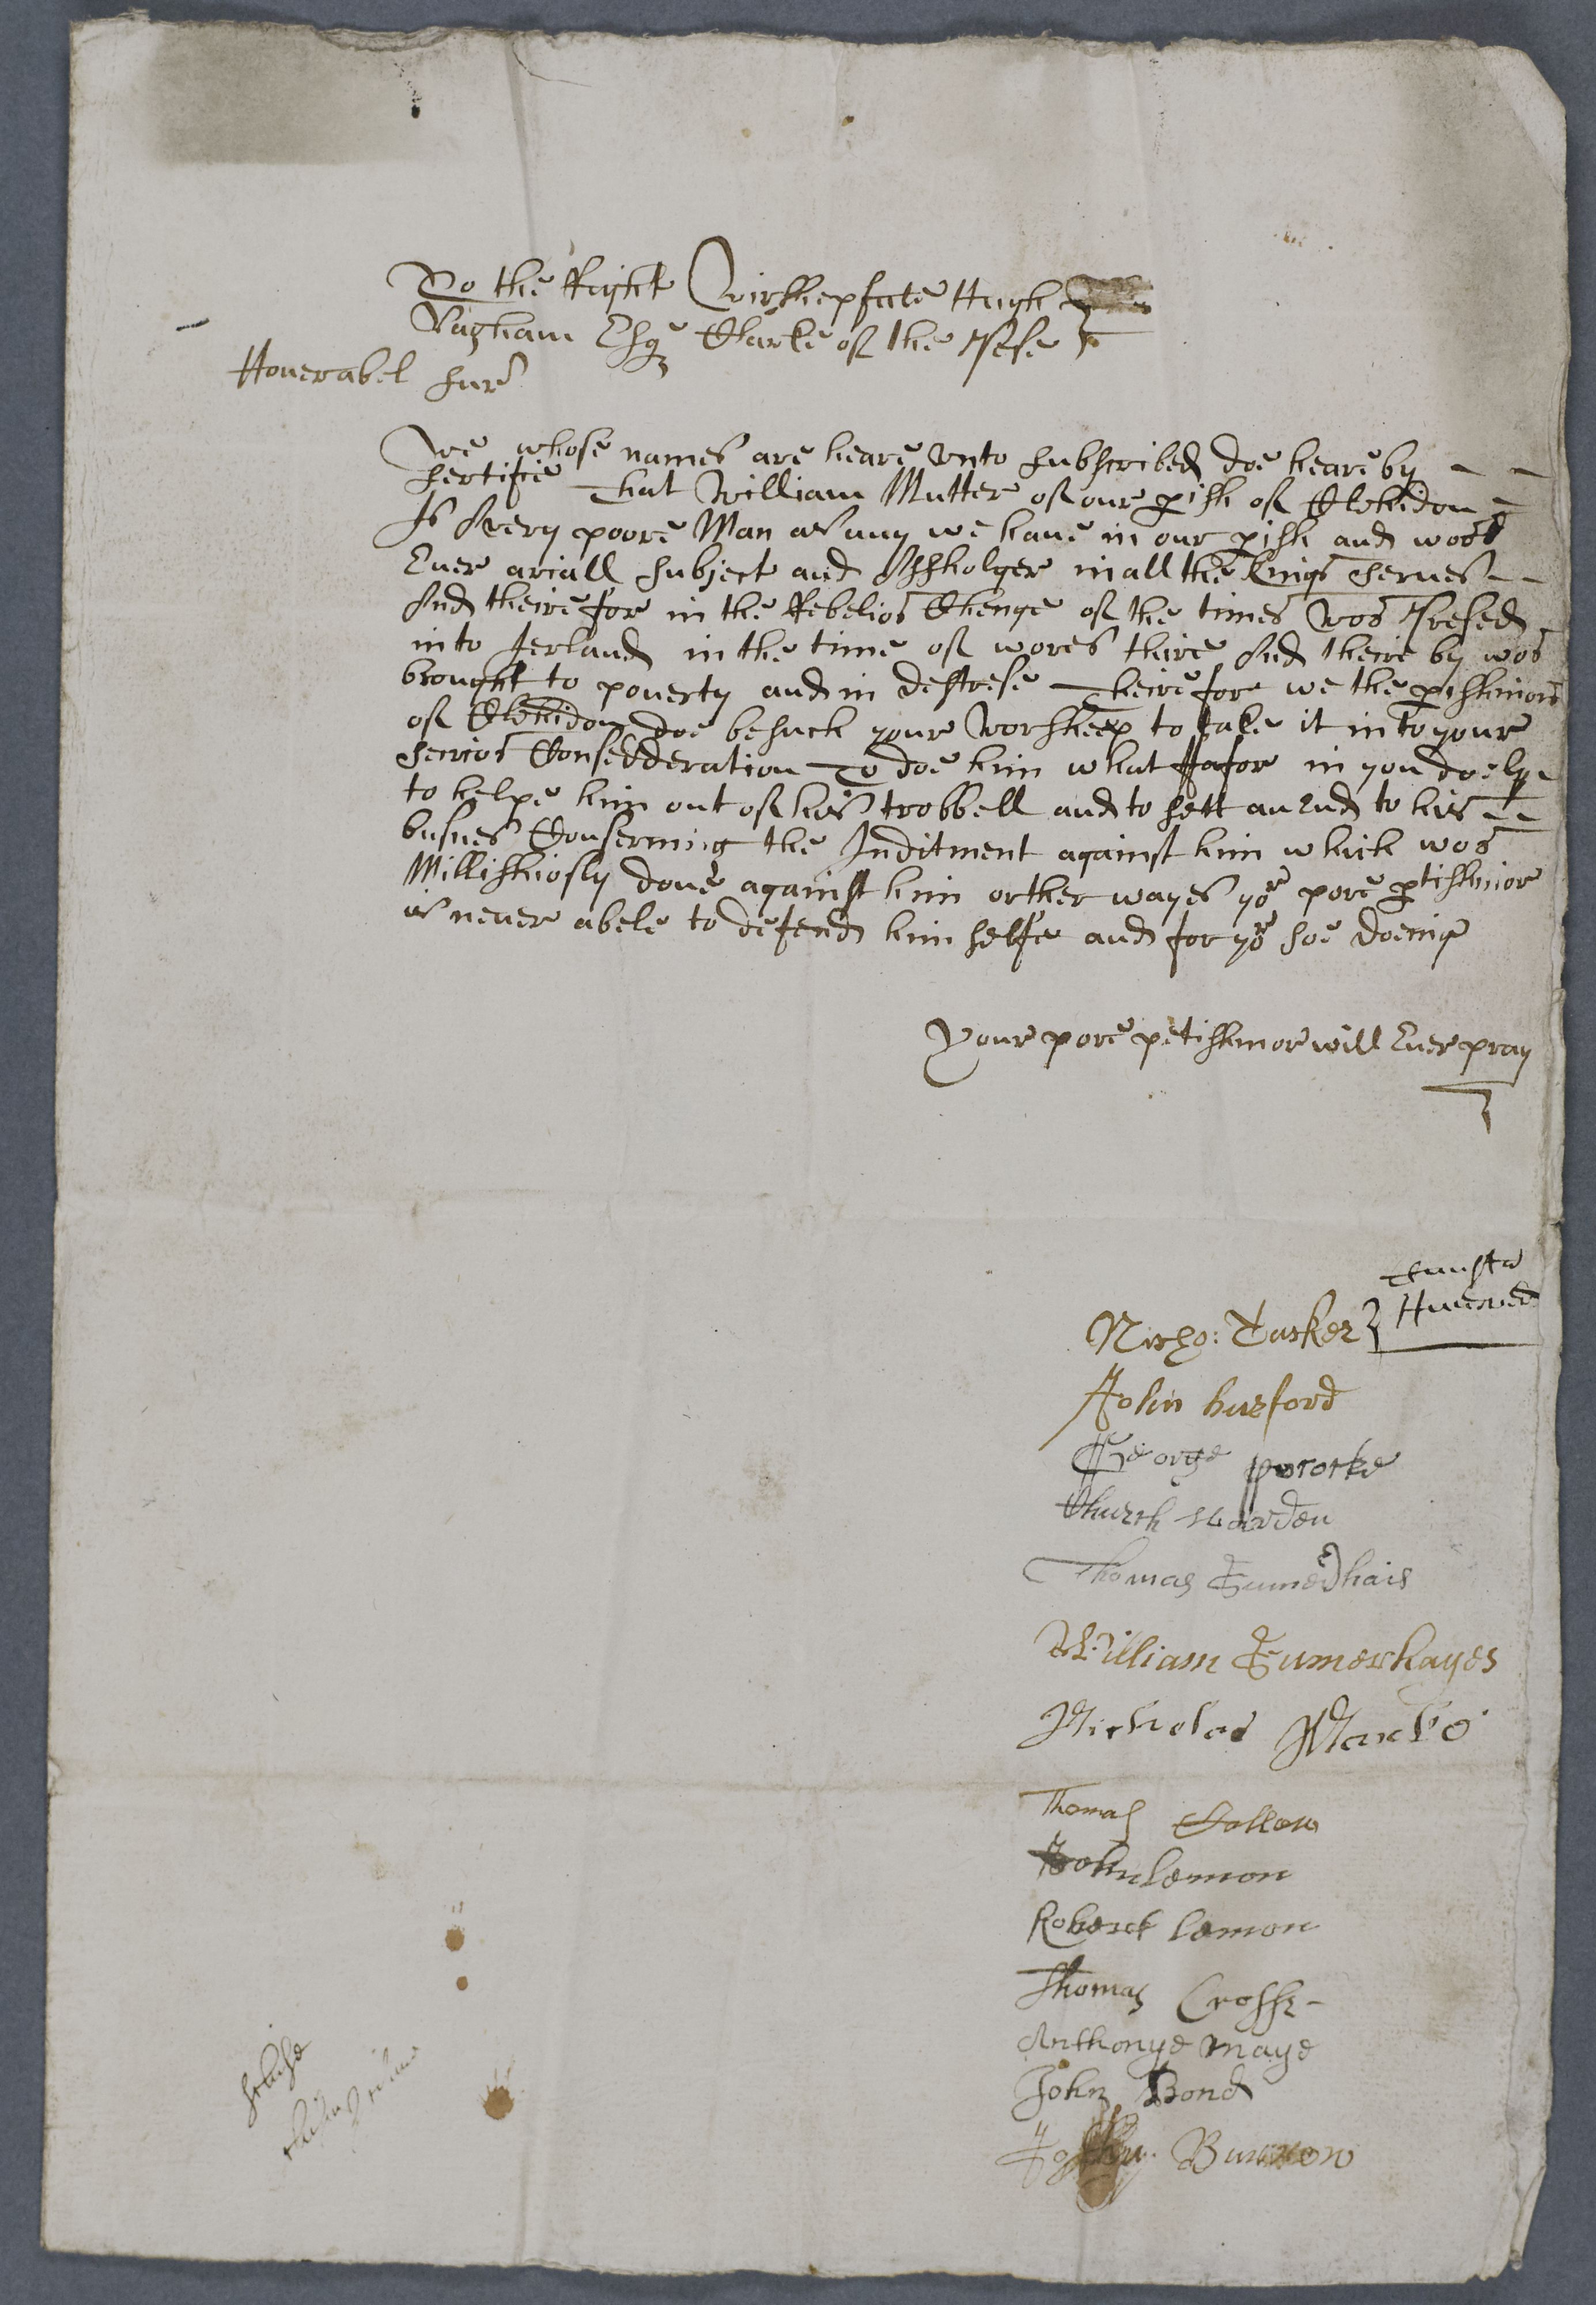 To the Right Wirshepfulle Hugh
Vagham Esq Clarke of the Pese
Honerabel sur
We whose names are heare vnto subscribed doe heareby
sertifie That William Mutter of our pish of Clehidon
Is A very poore Man as any we haue in our pish and wos
Euer a riall subject and A sholger in all the kings serues
And theirefor in the Rebelios Chenge of the times wos Presed
into Jerland in the time of wores theire And theire by wos
brought to pouerty and in destrese Theirefor we the pishinors
of Clehidon doe besuch your Worsheep to take it into your
serios Consedderation To doe him what ffafor in you doe ly
to helpe him out of his trobbell and to sett an End to his
busnes Conserning the Inditment against him which wos
Millishiosly done against him orther wayes yor pore ptishinor
is neuer abele to defend him selfe and for yor soe doeing
Your pore petishinor will Euer pray
Nicho: Tucker
John hurford
George pococke
Church warden
Thomas Gumerhais
William Gumerhayes
Nicholas Mancko
Thomas Collow
John Lemon
Roberct Lemon
Thomas Crosse
Anthonye maye
John Bond
John Burrow